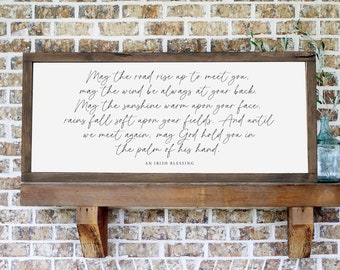 May the road rise up to meet you,
may the wind be always at your back.
May the sunshine warm upon your face,
rains fall soft upon your fields. And until
we meet again, may God hold you in
the palm of his hand.
AN IRISH BLESSING